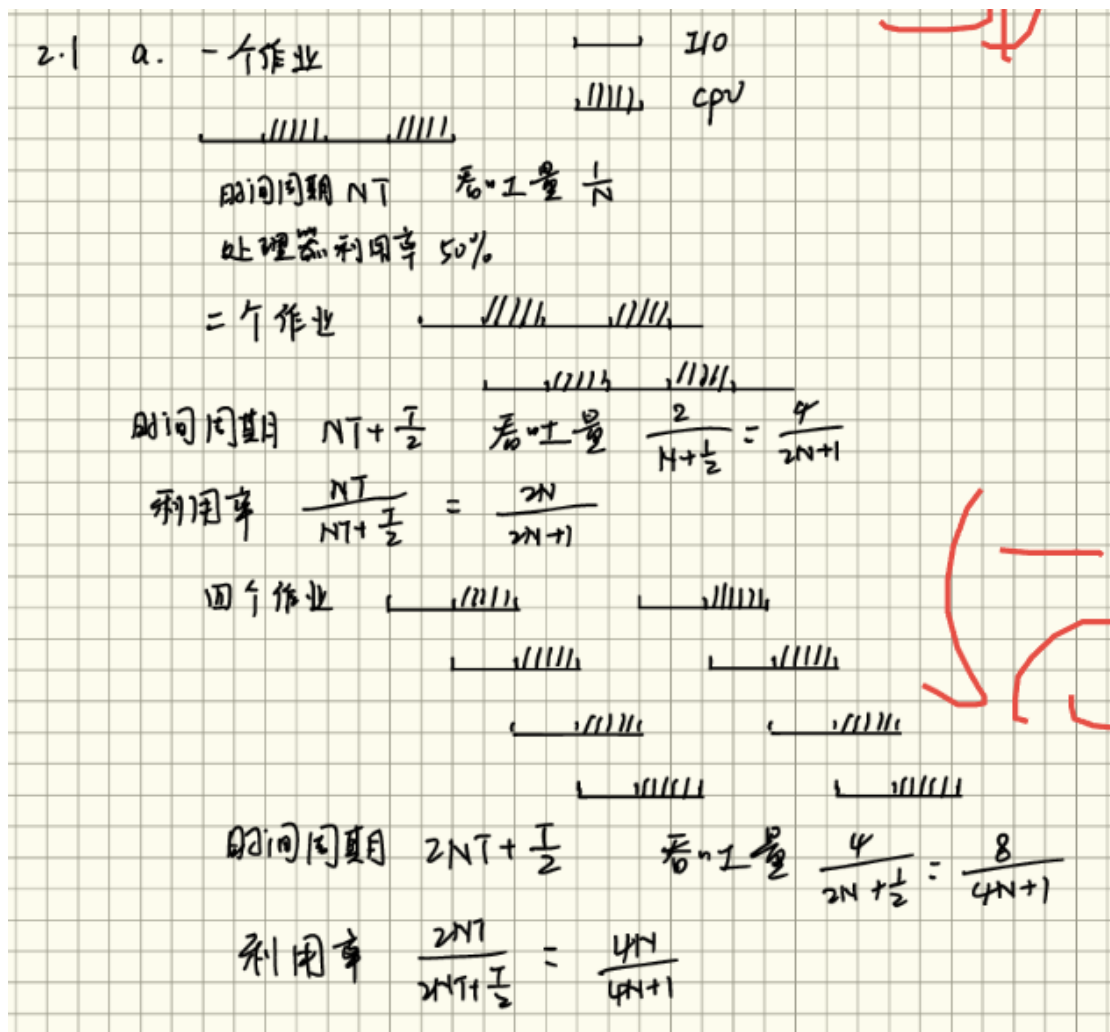 2.1 a. 一个作业 I/O
CPU
时间周期 NT 吞吐量 1/N
处理器利用率 50%
二个作业
时间周期 NT+T/2 吞吐量 2/(N+1/2) = 4/(2N+1)
利用率 NT/(NT+T/2) = 2N/(2N+1)
四个作业
时间周期 2NT+T/2 吞吐量 4/(2N+1/2) = 8/(4N+1)
利用率 2NT/(2NT+T/2) = 4N/(4N+1)